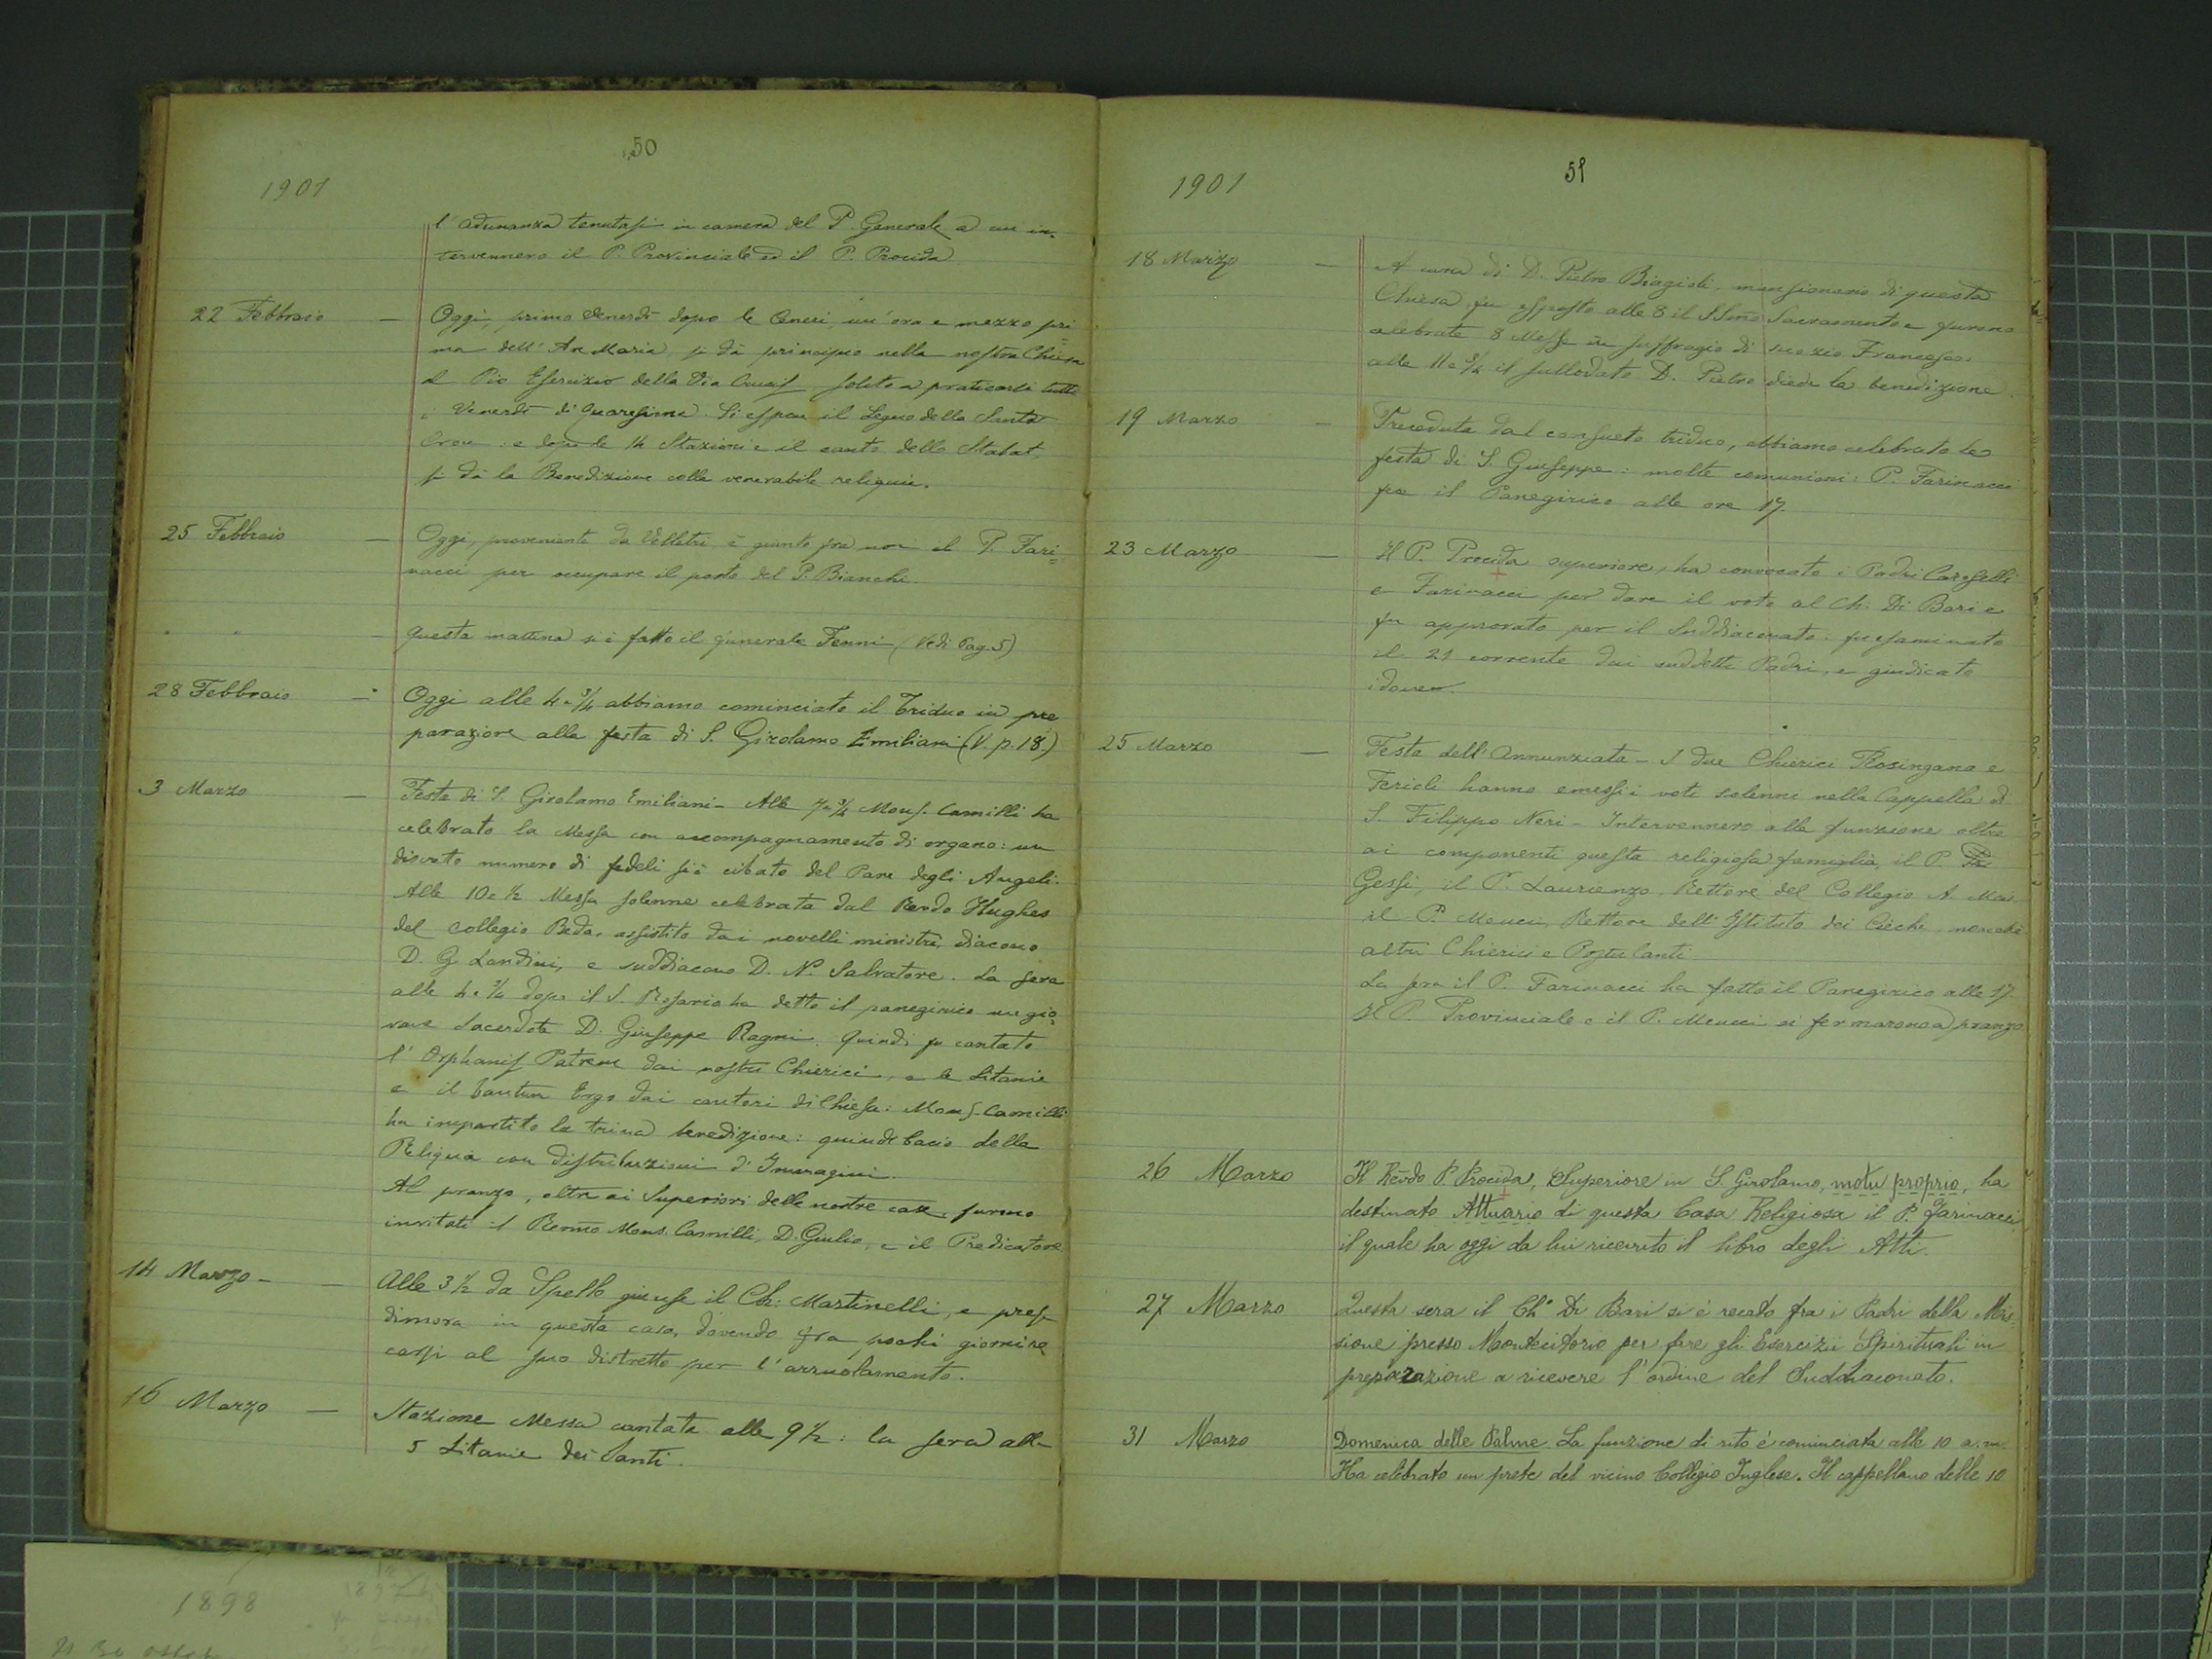 50
1901
l'adunanza tenutasi in camera del P. Generale a cui in-
tervennero il P. Provinciale ed il P. Procida
22 Febbraio — Oggi, primo Venerdì dopo le Ceneri, un'ora e mezzo pri=
ma dell'Ave Maria, si dà principio nella nostra Chiesa
al Pio Esercizio della Via Crucis solito a praticarsi tutti
i Venerdì di Quaresima. Si espone il Legno della Santa
Croce: e dopo le 14 Stazioni e il canto dello Stabat,
si dà la Benedizione colla venerabile reliquia.
25 Febbraio — Oggi, proveniente da Velletri, è giunto fra noi il P. Fari=
nacci per occupare il posto del P. Bianchi.
" " — Questa mattina si è fatto il funerale Fenni (Vedi Pag. 5)
28 Febbraio — Oggi alle 4 e 3/4 abbiamo cominciato il Triduo in pre
parazione alla festa di S. Girolamo Emiliani (V. p. 18.)
3 Marzo — Festa di S. Girolamo Emiliani - Alle 7 e 3/4 Mons. Camilli ha
celebrato la Messa con accompagnamento di organo: un
discreto numero di fedeli si è cibato del Pane degli Angeli.
Alle 10 e 1/2 Messa solenne celebrata dal Revdo Hughes
del Collegio Beda, assistito dai novelli ministri, diacono
D. G. Landini, e suddiacono D. N. Salvatore. La sera
alle 4 e 3/4 dopo il S. Rosario ha detto il panegirico un gio=
vane Sacerdote D. Giuseppe Ragni. Quindi fu cantato
l'Orphanis Patrem dai nostri Chierici, e le Litanie
e il Tantum Ergo dai cantori di Chiesa: Mons. Camilli
ha impartito la trina benedizione: quindi bacio della
Reliquia con distribuzioni d'Immagini.
Al pranzo, oltre ai Superiori delle nostre case, furono
invitati il Revmo Mons. Camilli, D. Giulio, e il Predicatore
14 Marzo - — Alle 3 1/2 da Spello giunse il Ch: Martinelli, e prese
dimora in questa casa, dovendo fra pochi giorni re
carsi al suo distretto per l'arruolamento.
16 Marzo — Stazione Messa cantata alle 9 1/2: la sera alle
5 Litanie dei Santi.
51
1901
18 Marzo — A cura di D. Pietro Biagioli, mansionario di questa
Chiesa fu esposto alle 8 il SSmo Sacramento e furono
celebrate 8 Messe in suffragio di suo zio Francesco:
alle 11 e 3/4 il sullodato D. Pietro diede la benedizione.
19 Marzo — Preceduta dal consueto triduo, abbiamo celebrato la
festa di S. Giuseppe: molte comunioni: P. Farinacci
fece il Panegirico alle ore 17.
23 Marzo — Il P. Procida superiore, ha convocato i Padri Caroselli
e Farinacci per dare il voto al Ch. Di Bari e
fu approvato per il Suddiaconato: fu esaminato
il 21 corrente dai suddetti Padri, e giudicato
idoneo.
25 Marzo — Festa dell'Annunziata - I due Chierici Rosingana e
Ferioli hanno emessi i voti solenni nella Cappella di
S. Filippo Neri - Intervennero alla funzione oltre
ai componenti questa religiosa famiglia, il P.
Gessi, il P. Laurienzo Rettore del Collegio A. Man
il P. Meucci, Rettore dell'Istituto dei Ciechi nonchè
altri Chierici e Postulanti.
La sera il P. Farinacci ha fatto il Panegirico alle 17
Il P. Provinciale e il P. Meucci si fermarono a pranzo
26 Marzo Il Revdo P. Procida, Superiore in S. Girolamo, motu proprio, ha
destinato Attuario di questa Casa Religiosa il P. Farinacci,
il quale ha oggi da lui ricevuto il libro degli Atti.
27 Marzo Questa sera il Ch° Di Bari si è recato fra i Padri della Mis
sione presso Montecitorio per fare gli Esercizii Spirituali in
preparazione a ricevere l'ordine del Suddiaconato.
31 Marzo Domenica delle Palme. La funzione di rito è cominciata alle 10 a.m.
Ha celebrato un prete del vicino Collegio Inglese. Il cappellano delle 10
1898